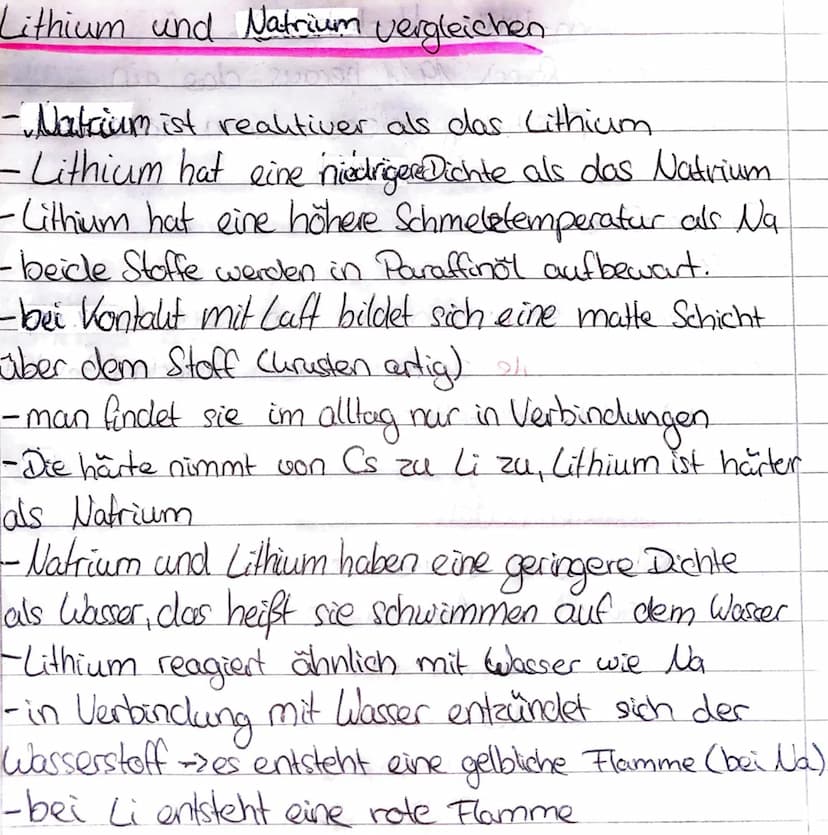 Lithium und Natrium vergleichen
- Natrium ist reaktiver als das Lithium
- Lithium hat eine niedrigere Dichte als das Natrium
- Lithium hat eine höhere Schmelztemperatur als Na
- beide Stoffe werden in Paraffinöl aufbewart.
- bei Kontakt mit Luft bildet sich eine matte Schicht
über dem Stoff (krusten artig)
- man findet sie im alltag nur in Verbindungen
- Die härte nimmt von Cs zu Li zu, Lithium ist härter
als Natrium
- Natrium und Lithium haben eine geringere Dichte
als Wasser, das heißt sie schwimmen auf dem Wasser
- Lithium reagiert ähnlich mit Wasser wie Na
- in Verbindung mit Wasser entzündet sich der
Wasserstoff -> es entsteht eine gelbliche Flamme (bei Na)
- bei Li entsteht eine rote Flamme